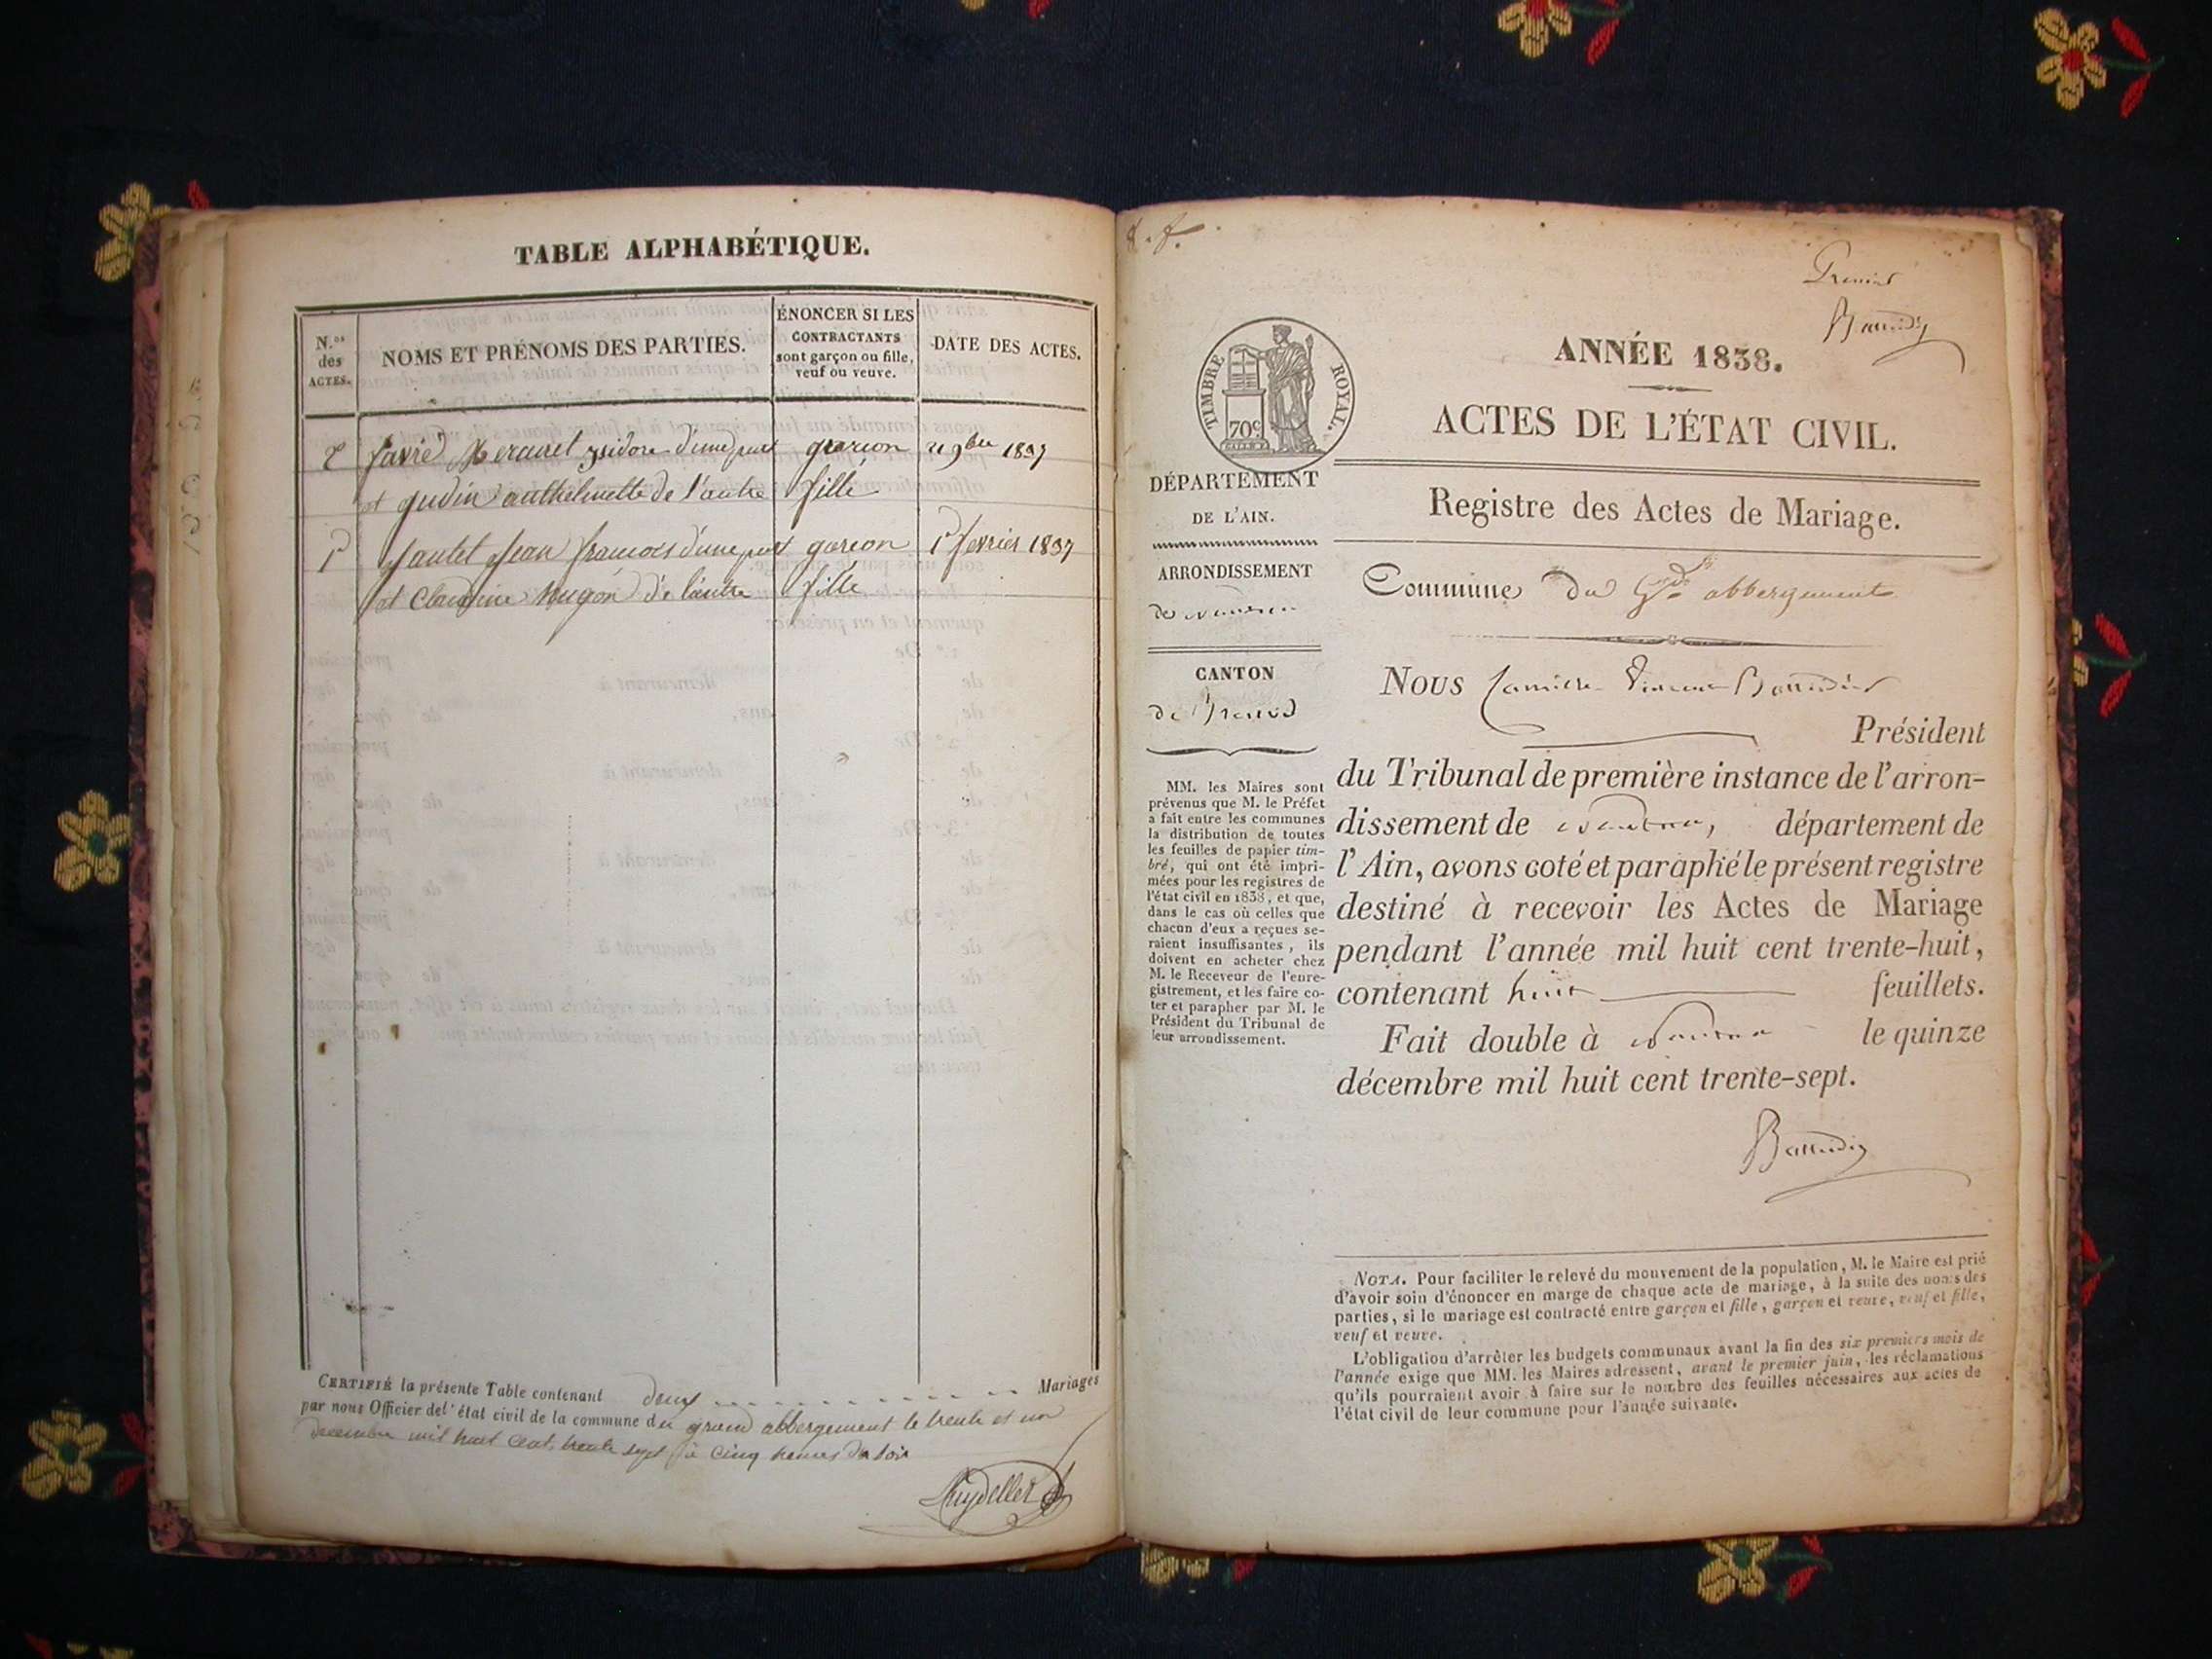 TABLE ALPHABÉTIQUE.
N.os des ACTES.
NOMS ET PRÉNOMS DES PARTIES.
ÉNONCER SI LES CONTRACTANTS sont garçon ou fille, veuf ou veuve.
DATE DES ACTES.
2 favre ysidore d'une part garcon 21 9bre 1837
et gudin anthelmette de l'autre fille
1 Jautet Jean francois d'une part garcon 1er fevrier 1837
et Claudine Mugon de l'autre fille
CERTIFIÉ la présente Table contenant deux Mariages
par nous Officier del' état civil de la commune du grand abbergement le trente et un
decembre mil huit cent trente sept à cinq heures du soir
Premier
ANNÉE 1838.
TIMBRE ROYAL.
70c
ACTES DE L'ÉTAT CIVIL.
Registre des Actes de Mariage.
Commune du Gd abbergement
DÉPARTEMENT
DE L'AIN.
ARRONDISSEMENT
de nantua
CANTON
de Brenod
MM. les Maires sont
prévenus que M. le Préfet
a fait entre les communes
la distribution de toutes
les feuilles de papier tim-
bré, qui ont été impri-
mées pour les registres de
l'état civil en 1838, et que,
dans le cas où celles que
chacun d'eux a reçues se-
raient insuffisantes, ils
doivent en acheter chez
M. le Receveur de l'enre-
gistrement, et les faire co-
ter et parapher par M. le
Président du Tribunal de
leur arrondissement.
Nous
Président
du Tribunal de première instance de l'arron-
dissement de nantua, département de
l'Ain, avons coté et paraphé le présent registre
destiné à recevoir les Actes de Mariage
pendant l'année mil huit cent trente-huit,
contenant huit feuillets.
Fait double à nantua le quinze
décembre mil huit cent trente-sept.
NOTA. Pour faciliter le relevé du mouvement de la population, M. le Maire est prié
d'avoir soin d'énoncer en marge de chaque acte de mariage, à la suite des noms des
parties, si le mariage est contracté entre garçon et fille, garçon et veuve, veuf et fille,
veuf et veuve.
L'obligation d'arrêter les budgets communaux avant la fin des six premiers mois de
l'année exige que MM. les Maires adressent, avant le premier juin, les réclamations
qu'ils pourraient avoir à faire sur le nombre des feuilles nécessaires aux actes de
l'état civil de leur commune pour l'année suivante.